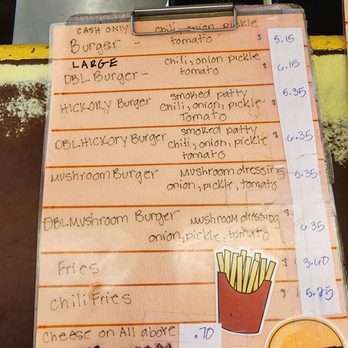 CASH ONLY chili, onion pickle
Burger - tomato $ 5.15
LARGE chili, onion pickle
DBL Burger - tomato $ 6.15
smoked patty 5.35
HICKORY Burger chili, onion, pickle
Tomato
smoked patty
DBL HICKORY Burger chili, onion, pickle $ 6.35
tomato
MUSHROOM Burger Mushroom dressing 5.35
onion, pickle, tomato
DBL MUSHROOM Burger mushroom dressing $ 6.35
onion, pickle, tomato
Fries $ 3.60
Chili Fries $ 5.25
Cheese on All above .70